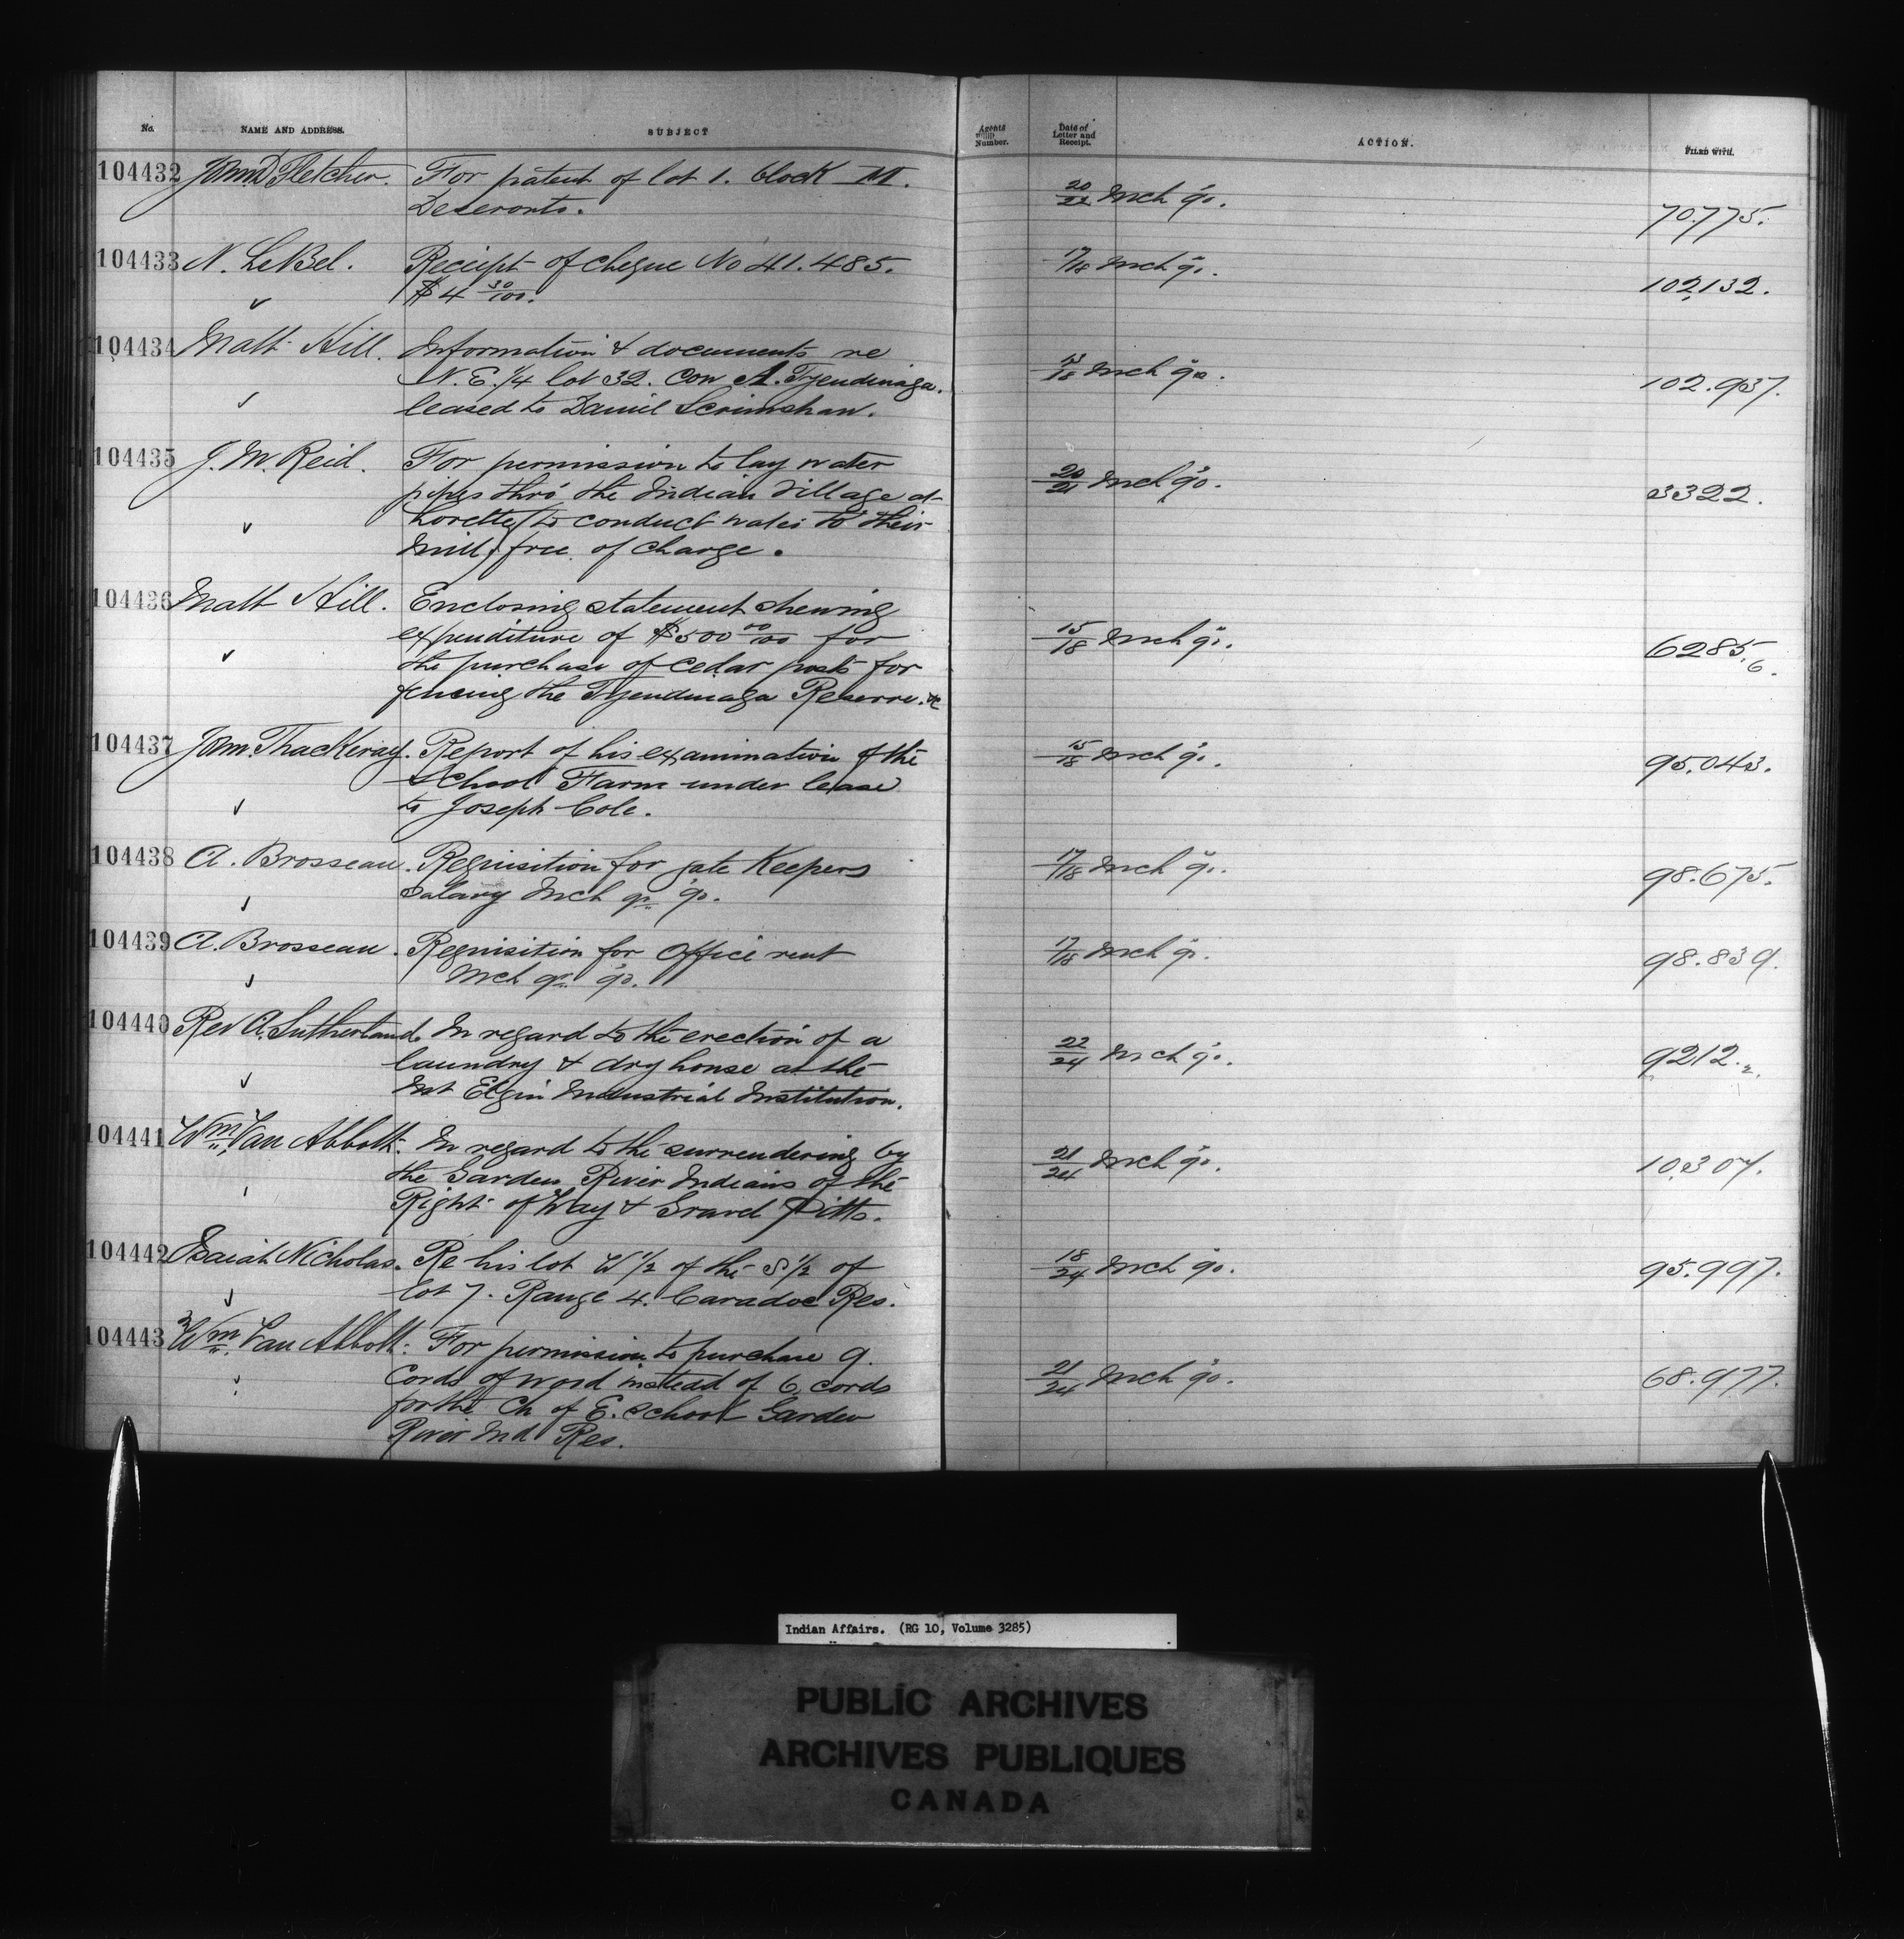 No. NAME AND ADDRESS. SUBJECT Agents Number. Date of Letter and Receipt. ACTION. FILED WITH.
104432 John D Fletcher. For patent of lot 1. block M. 20/22 Mch '90. 70.775.
Deseronto.
104433 N. LeBel. Receipt of cheque No 41.485. 17/18 Mch '90. 102,132.
$4 30/100.
104434 Matt Hill. Information & documents re 13/18 Mch '90. 102.937.
N.E. 1/4 lot 32. Con A. Tyendinaga.
leased to Daniel Scrimshaw.
104435 J. M. Reid. For permission to lay water 20/21 Mch '90. 3322.
pipes thro' the Indian Village at
Lorette, to conduct water to their
mill, free of charge.
104436 Matt Hill. Enclosing statement shewing 15/18 Mch '90. 6285.6.
expenditure of $500 00/100 for
the purchase of cedar posts for
fencing the Tyendinaga Reserve. &c
104437 John Thackeray. Report of his examination of the 15/18 Mch '90. 95.043.
School Farm under lease
to Joseph Cole.
104438 A. Brosseau. Requisition for gate Keepers 17/18 Mch '90. 98.675.
salary Mch qr. '90.
104439 A. Brosseau. Requisition for Office rent 17/18 Mch '90. 98.839.
Mch qr. '90.
104440 Rev A. Sutherland. In regard to the erection of a 22/24 Mch '90. 9212.2.
laundry & dry house at the
Mt Elgin Industrial Institution.
104441 Wm. Van Abbott. In regard to the surrendering by 21/24 Mch '90. 10,307.
the Garden River Indians of the
Right of Way & Gravel Pitts.
104442 Isaiah Nicholas. Re his lot W 1/2 of the S 1/2 of 18/24 Mch '90. 95.997.
lot 7. Range 4. Caradoc Res.
104443 Wm. Van Abbott. For permission to purchase 9. 21/24 Mch '90. 68.977.
Cords of wood instead of 6 cords
for the Ch of E. School Garden
River Ind Res.
Indian Affairs. (RG 10, Volume 3285)
PUBLIC ARCHIVES
ARCHIVES PUBLIQUES
CANADA